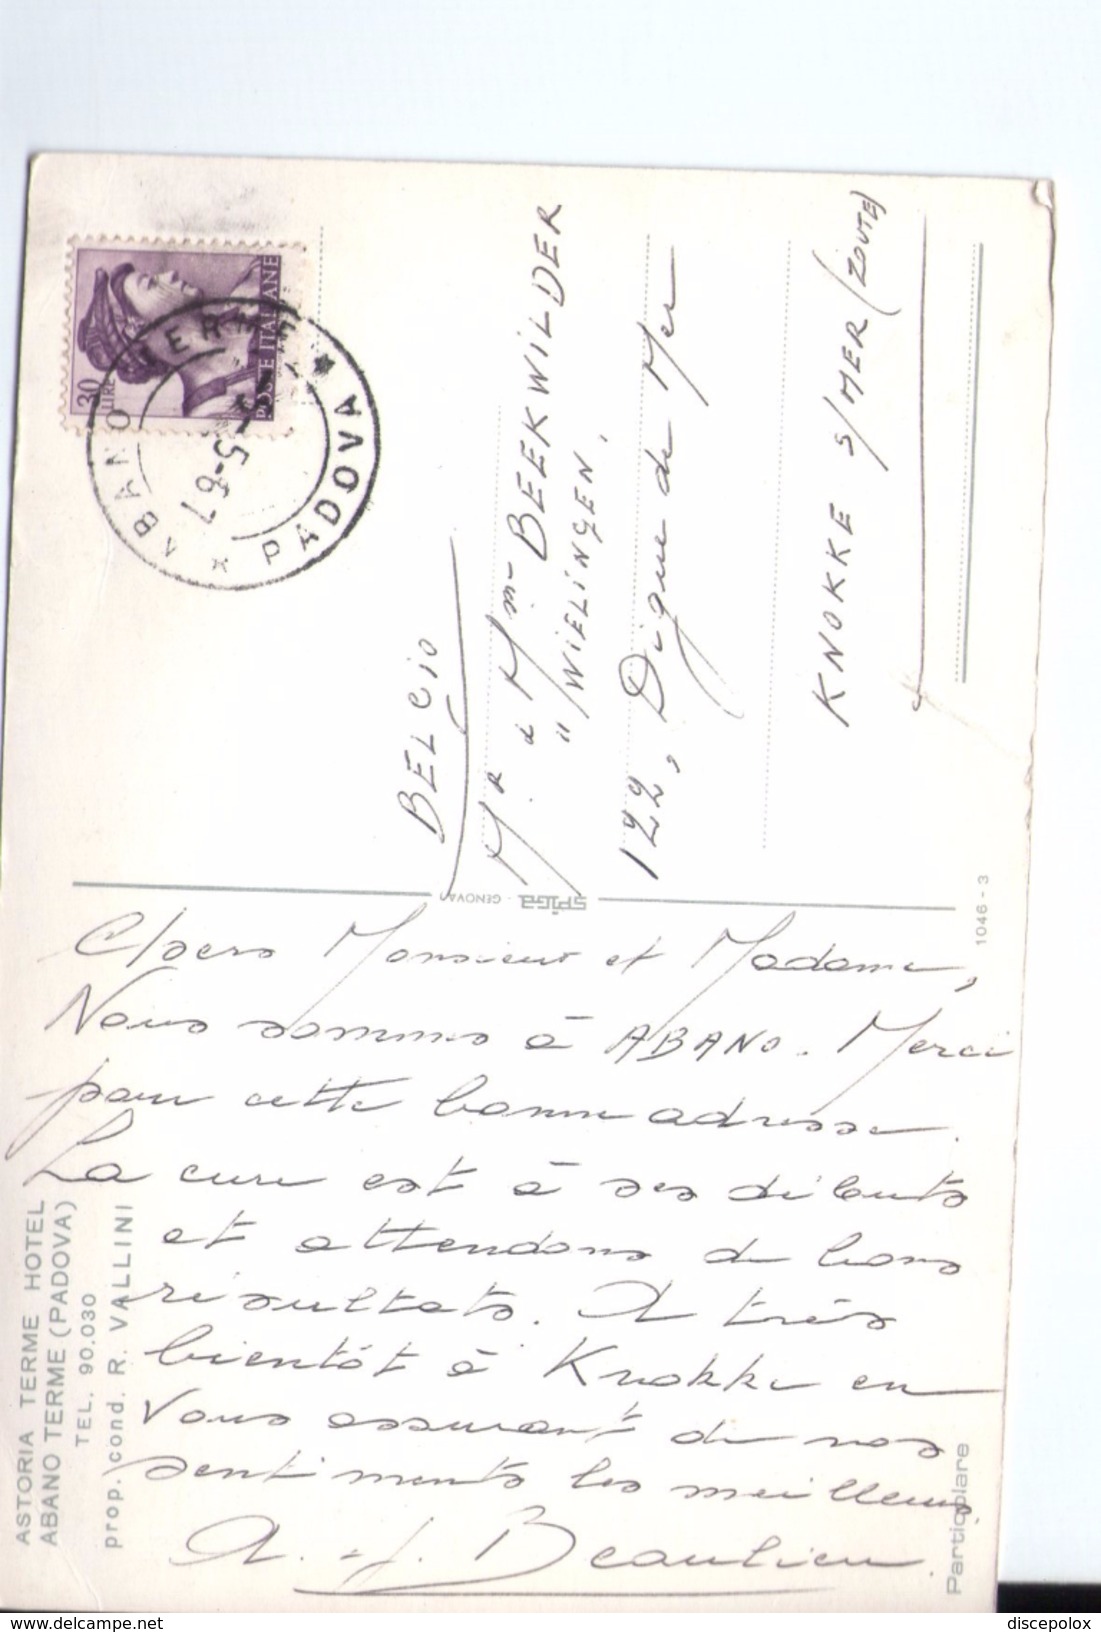 Chers Monsieur et Madame,
Nous sommes à ABANO. Merci
pour cette bonne adresse.
La cure est à ses débuts
et attendons de bons
résultats. A très
bientôt à Knokke en
Vous assurant de nos
sentiments les meilleurs.
A. J. Beaulieu.
ASTORIA TERME HOTEL
ABANO TERME (PADOVA)
TEL. 90.030
prop. cond. R. VALLINI
Particolare
1046 - 3
SPIGA - GENOVA
30
LIRE
POSTE ITALIANE
ABANO TERME
-5-67
* PADOVA *
BELGIO
Mr & Mme BEEKWILDER
"WIELINGEN"
122, Digue de Mer
KNOKKE s/MER (ZOUTE)
www.delcampe.net
discepolox